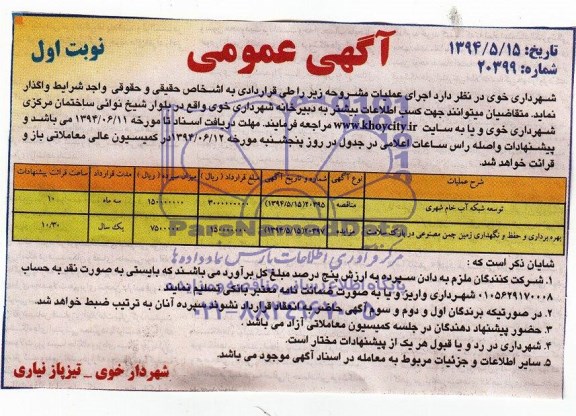 آگهی عمومی
نوبت اول
تاریخ: ۱۳۹۴/۵/۱۵
شماره: ۲۰۳۹۹
شهرداری خوی در نظر دارد اجرای عملیات مشروحه زیر را طی قراردادی به اشخاص حقیقی و حقوقی واجد شرایط واگذار
نماید. متقاضیان میتوانند جهت کسب اطلاعات بیشتر به دبیرخانه شهرداری خوی واقع در بلوار شیخ نوائی ساختمان مرکزی
شهرداری خوی و یا به سایت www.khoycity.ir مراجعه فرمایند. مهلت دریافت اسناد تا مورخه ۱۳۹۴/۰۶/۱۱ می باشد و
پیشنهادات واصله راس ساعات اعلامی در جدول در روز پنجشنبه مورخه ۱۳۹۴/۰۶/۱۲ در کمیسیون عالی معاملاتی باز و
قرائت خواهد شد.
شرح عملیات نوع آگهی شماره و تاریخ آگهی مبلغ قرارداد ( ریال ) میزان سپرده ( ریال ) مدت قرارداد ساعت قرائت پیشنهادات
توسعه شبکه آب خام شهری مناقصه ۲۰۳۹۵(۱۳۹۴/۵/۱۵) ۳۰۰۰۰۰۰۰۰۰ ۱۵۰۰۰۰۰۰۰ سه ماه ۱۰
بهره برداری و حفظ و نگهداری زمین چمن مصنوعی در پارک مزایده یک سال ۱۰/۳۰
شایان ذکر است که :
۱. شرکت کنندگان ملزم به دادن سپرده به ارزش پنج درصد مبلغ کل برآورد می باشند که بایستی به صورت نقد به حساب
۰۱۰۵۶۲۹۱۷۰۰۰۸ شهرداری واریز و یا به صورت ضمانت نامه معتبر بانکی تسلیم نمایند
۲. در صورتیکه برندگان اول و دوم و سوم آگهی حاضر به انعقاد قرارداد نشوند سپرده آنان به ترتیب ضبط خواهد شد.
۳. حضور پیشنهاد دهندگان در جلسه کمیسیون معاملاتی آزاد می باشد .
۴. شهرداری در رد و یا قبول هر یک از پیشنهادات مختار است.
۵. سایر اطلاعات و جزئیات مربوط به معامله در اسناد آگهی موجود می باشد.
شهردار خوی _ تیزپاز نیاری
ParsNamadData
مرکز فرآوری اطلاعات پارس نماد داده ها
پایگاه اطلاع رسانی مناقصه و مزایده
۰۲۱-۸۸۳۴۹۶۷۰-۵